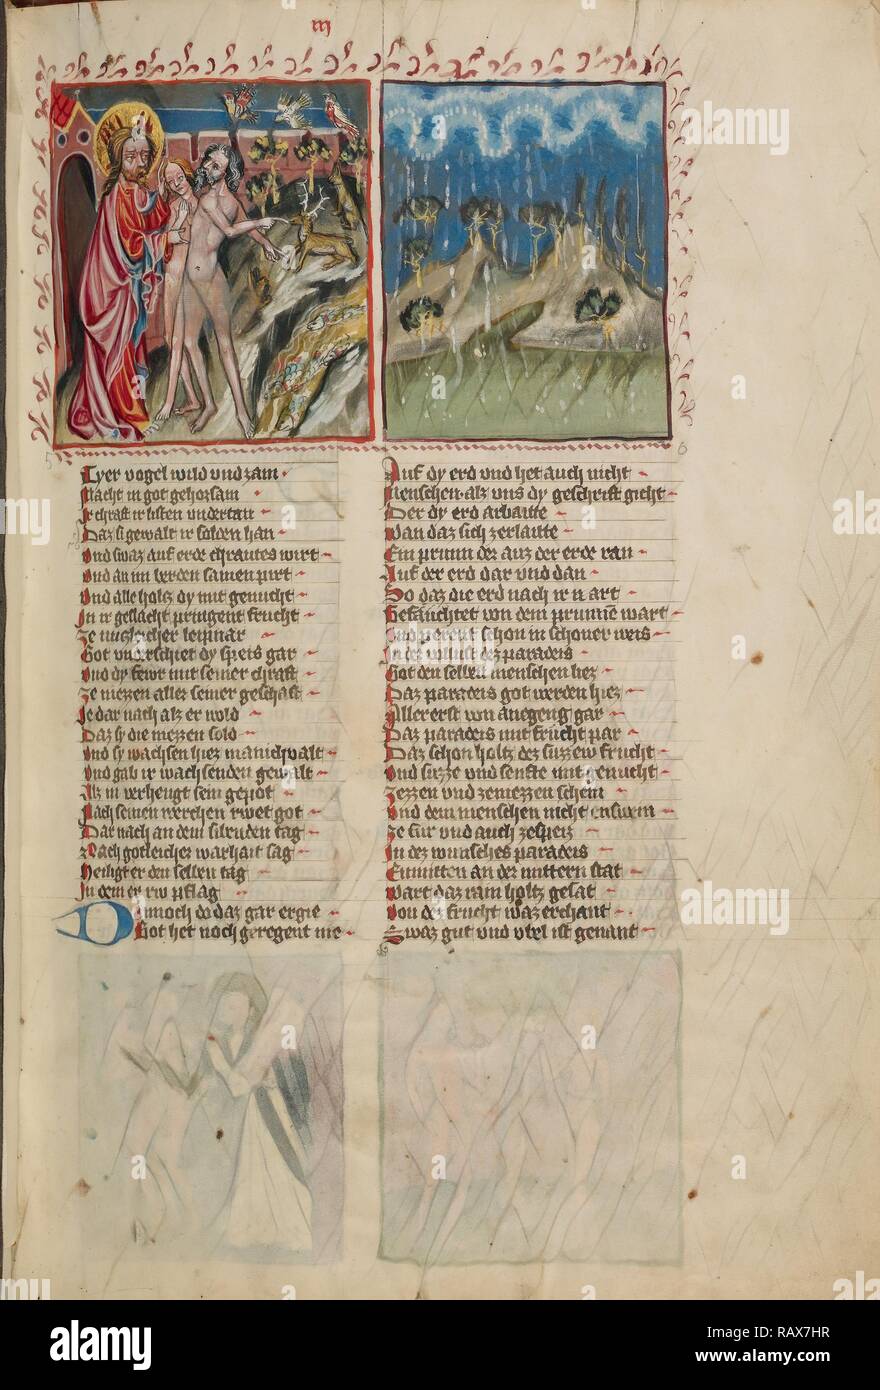 III
Tyer vogel wild vnd zam
Macht in got gehorsam
Ir chraft ir listen vndertan
Daz si gewalt ir solden han
Vnd swaz auf erde chrautes wirt
Vnd an im berden samen pirt
Vnd alle holtz dy mit genucht
In ir geslächt pringent frucht
Ze nuczlicher leipnar
Got vnderschiet dy speis gar
Vnd dy fewr mit seiner chraft
Ze niezzen aller seiner geschaft
Ie dar nach als er wold
Daz sy die niezzen sold
Vnd sy wachsen hiez manichvalt
Vnd gab ir wachsenden gewalt
Als in verhengt sein gepot
Nach seinen werchen rwet got
Dar nach an dem sibenden tag
Nach gotleicher warhait sag
Heiligt er den selben tag
In dem er rw pflag
Dannoch do daz gar ergie
Got het noch geregent nie
Auf dy erd vnd het auch nicht
Menschen als vns dy geschrift gicht
Der dy erd arbaitte
Wan daz sich zerlaitte
Ein prunn der auz der erde ran
Auf der erd dar vnd dan
So daz die erd nach ir n art
Gefäuchtet von dem prunne wart
Vnd perent schon in schoner weis
In der wllust dez paradeis
Got den selben menschen liez
Daz paradeis got werden hiez
Allererst von anegeng gar
Daz paradeis mit frucht par
Daz schon holtz dez suzzew frucht
Vnd suzze vnd senfte mit genucht
Zezzen vnd zeniezzen schein
Vnd dem menschen nicht enswein
Ze fur vnd auch zespeiz
In dez wunsches paradeis
Enmitten an der mittern stat
Wart daz ram holtz gesat
Von dez frucht waz erchant
Swaz gut vnd vbel ist genant
5
6
alamy
Image ID: RAX7HR
www.alamy.com